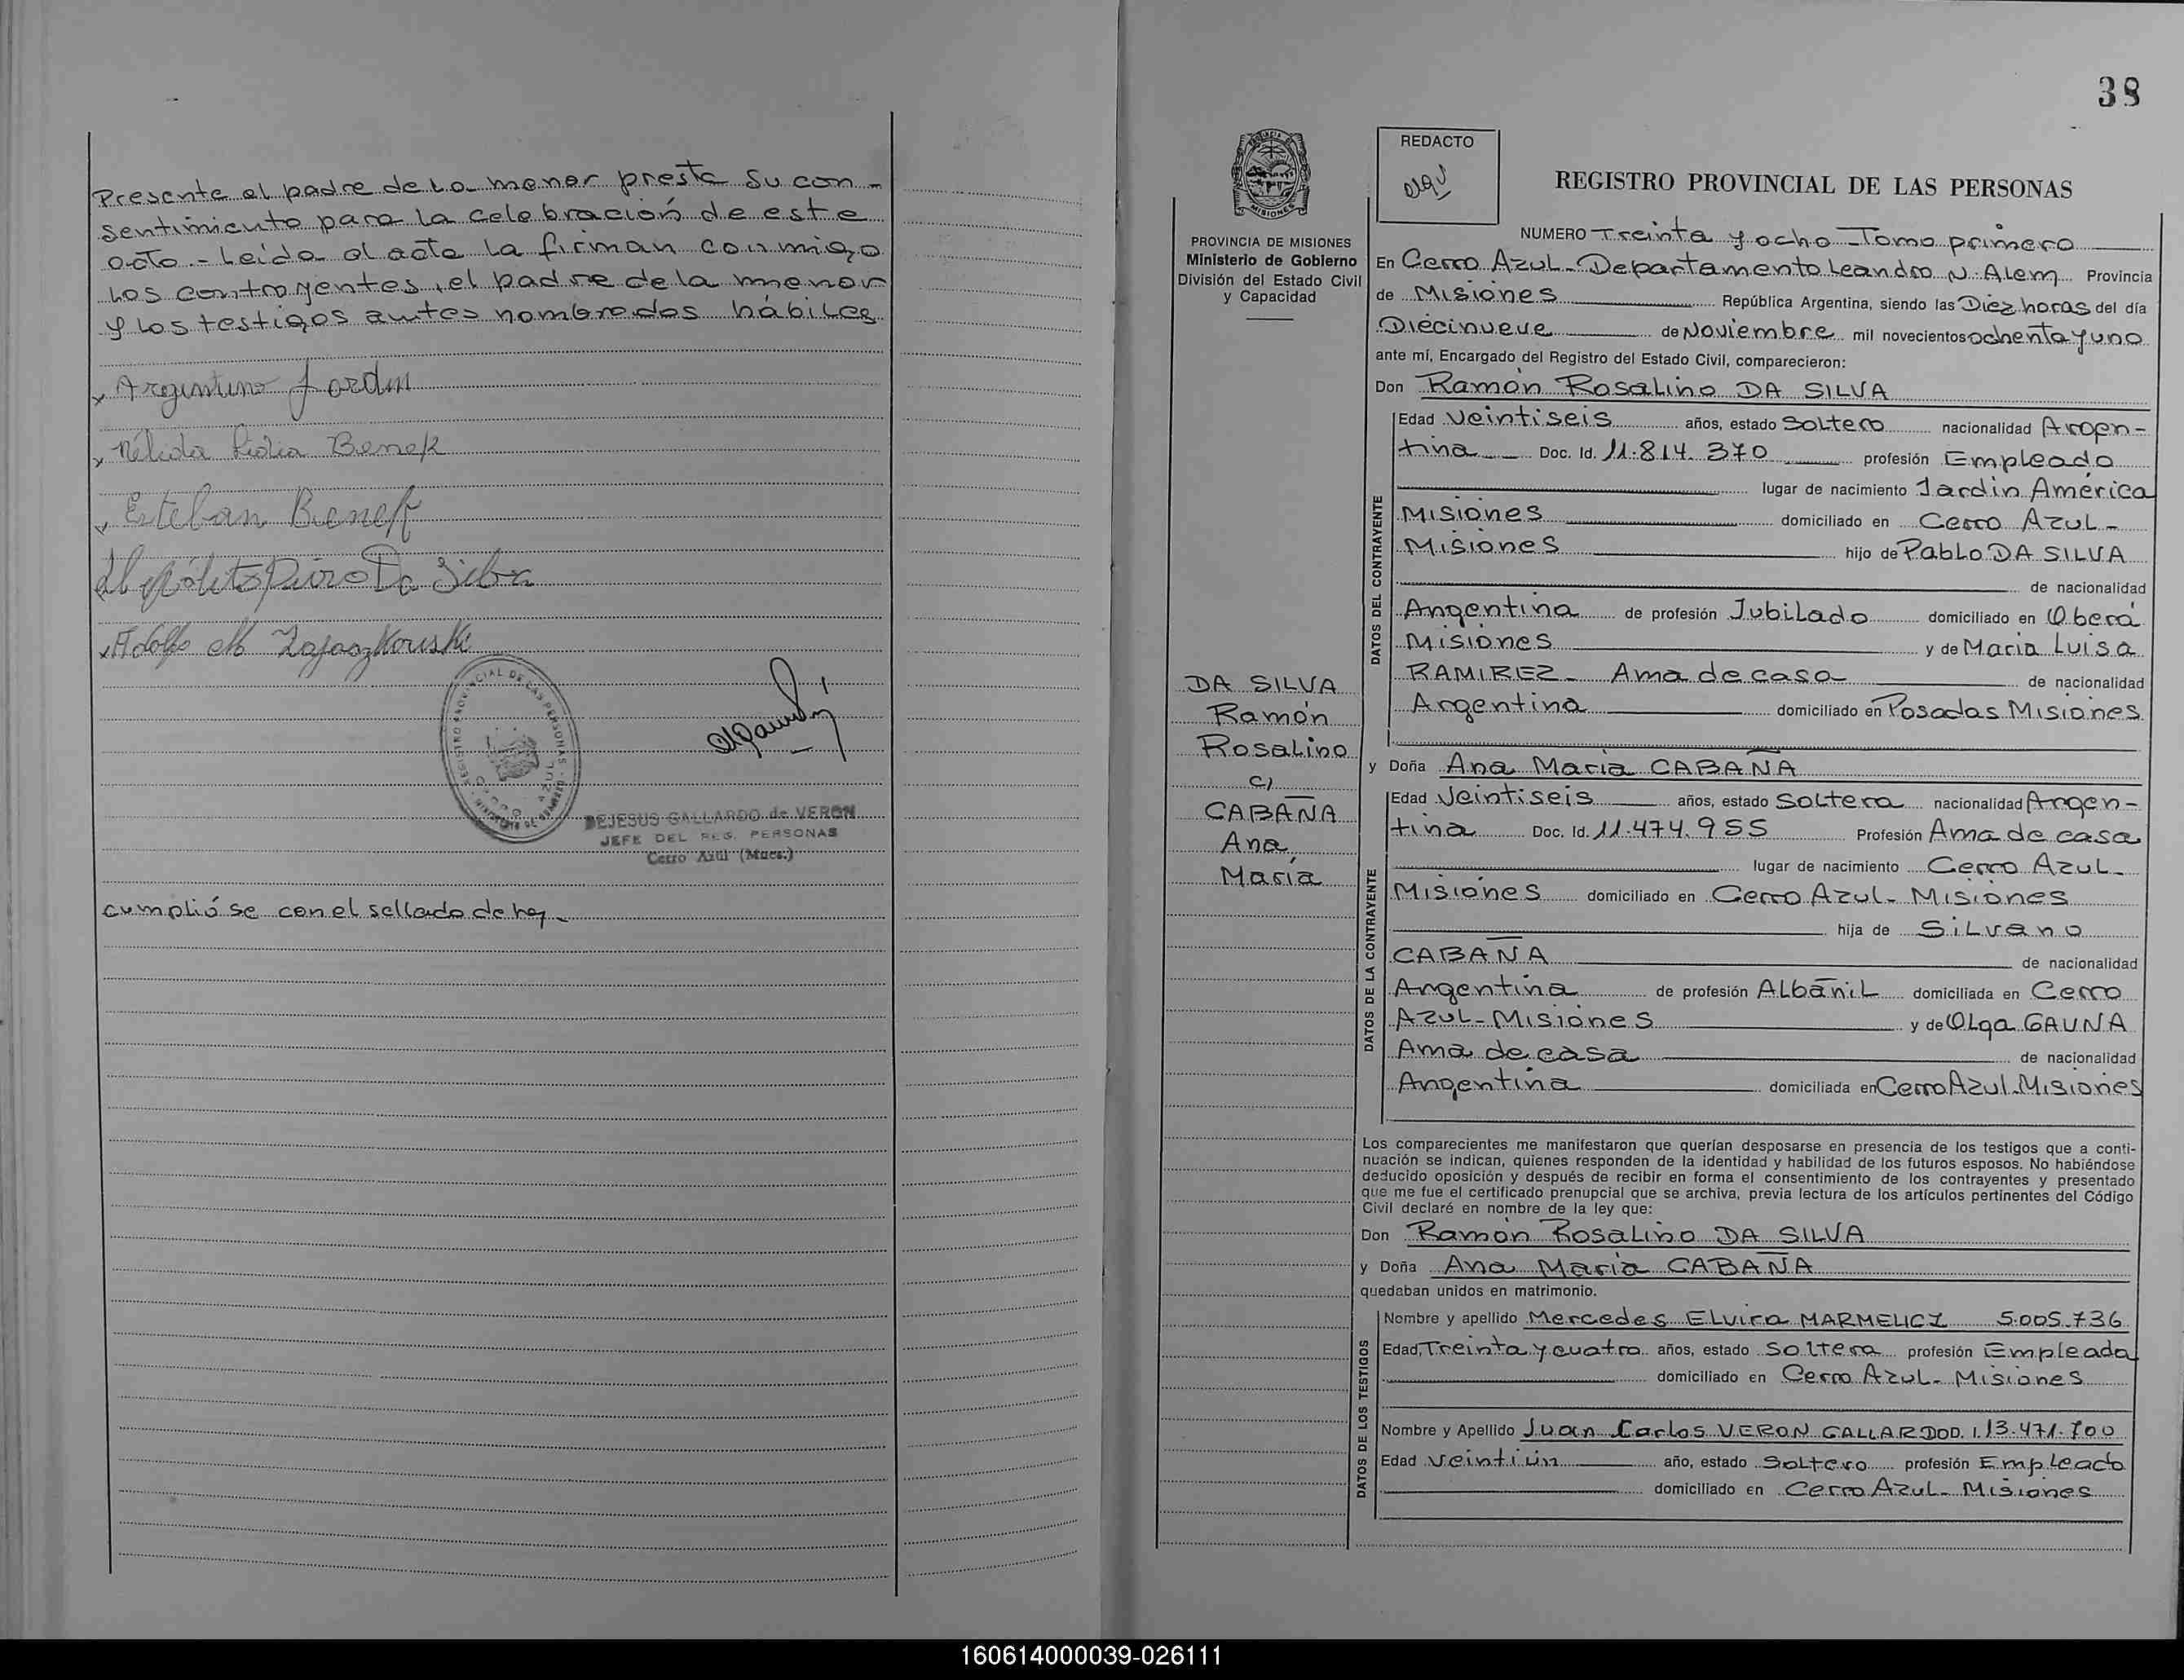 Presente el padre de la menor presta su con-
sentimiento para la celebración de este
acto.- Leída el acta la firman conmigo
los contrayentes, el padre de la menor
y los testigos antes nombrados hábiles
Argentino Jordin
Nélida Lidia Benek
Esteban Benek
Da Silva
Adolfo M Zajaszkouski
REGISTRO PROVINCIAL DE LAS PERSONAS
CERRO AZUL
DEJESUS GALLARDO de VERON
JEFE DEL REG. PERSONAS
Cerro Azul (Mnes.)
cumplió se con el sellado de ley-
38
REDACTO
REGISTRO PROVINCIAL DE LAS PERSONAS
MISIONES
PROVINCIA DE MISIONES
Ministerio de Gobierno
División del Estado Civil
y Capacidad
NUMERO Treinta y ocho - Tomo primero
En Cerro Azul - Departamento Leandro N. Alem Provincia
de Misiones República Argentina, siendo las Diez horas del día
Diecinueve de Noviembre mil novecientos ochenta y uno
ante mí, Encargado del Registro del Estado Civil, comparecieron:
Don Ramón Rosalino DA SILVA
DATOS DEL CONTRAYENTE
Edad Veintiseis años, estado Soltero nacionalidad Argen-
tina Doc. Id. 11.814.370 profesión Empleado
lugar de nacimiento Jardin América
Misiones domiciliado en Cerro Azul-
Misiones hijo de Pablo DA SILVA
de nacionalidad
Argentina de profesión Jubilado domiciliado en Oberá
Misiones y de Maria Luisa
RAMIREZ - Ama de casa de nacionalidad
Argentina domiciliado en Posadas Misiones
DA SILVA
Ramón
Rosalino
c/
CABAÑA
Ana
María
y Doña Ana Maria CABAÑA
DATOS DE LA CONTRAYENTE
Edad Veintiseis años, estado Soltera nacionalidad Argen-
tina Doc. Id. 11.474.955 Profesión Ama de casa
lugar de nacimiento Cerro Azul-
Misiones domiciliado en Cerro Azul- Misiones
hija de Silvano
CABAÑA de nacionalidad
Argentina de profesión Albañil domiciliada en Cerro
Azul-Misiones y de Olga GAUNA
Ama de casa de nacionalidad
Argentina domiciliada en Cerro Azul-Misiones
Los comparecientes me manifestaron que querían desposarse en presencia de los testigos que a conti-
nuación se indican, quienes responden de la identidad y habilidad de los futuros esposos. No habiéndose
deducido oposición y después de recibir en forma el consentimiento de los contrayentes y presentado
que me fue el certificado prenupcial que se archiva, previa lectura de los artículos pertinentes del Código
Civil declaré en nombre de la ley que:
Don Ramón Rosalino DA SILVA
y Doña Ana Maria CABAÑA
quedaban unidos en matrimonio.
DATOS DE LOS TESTIGOS
Nombre y apellido Mercedes Elvira MARMELICZ 5.005.736
Edad, Treinta y cuatro años, estado Soltera profesión Empleada
domiciliado en Cerro Azul- Misiones
Nombre y Apellido Juan Carlos VERON GALLARDO D.I. 13.471.700
Edad Veintiún año, estado Soltero profesión Empleado
domiciliado en Cerro Azul- Misiones
160614000039-026111